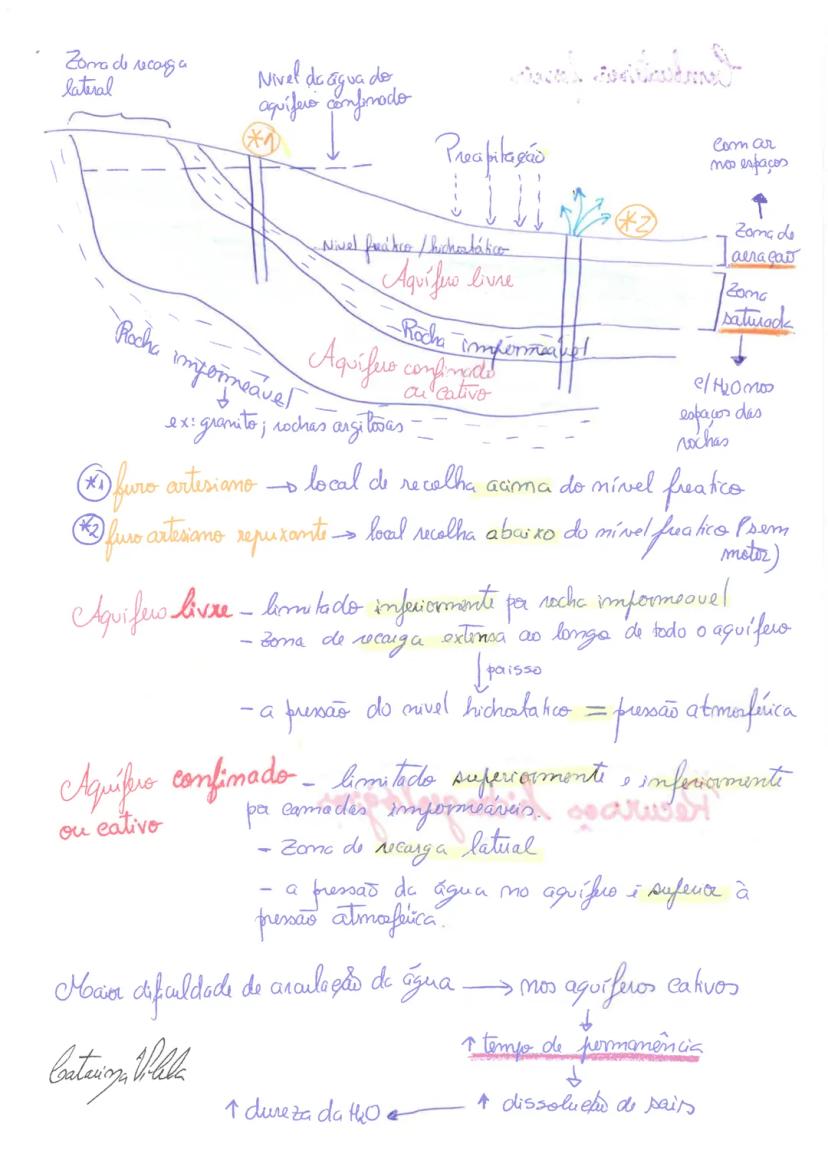 Zona de recarga
lateral
Nível da água do
aquífero confinado
*1
Precipitação
com ar
nos espaços
*2
Zona de
aeração
Nível freático/hidrostático
Aquífero livre
Zona
saturada
Rocha impermeável
Rocha impermeável
Aquífero confinado
ou cativo
ex: granito; rochas argilosas
c/ H2O nos
espaços das
rochas
*1 furo artesiano → local de recolha acima do nível freatico
*2 furo artesiano repuxante → local recolha abaixo do nível freatico (sem
motor)
Aquífero livre - limitado inferiormente por rocha impermeavel
- Zona de recarga extensa ao longo de todo o aquífero
↓ por isso
- a pressão do nivel hidrostatico = pressão atmosférica
Aquífero confinado - limitado superiormente e inferiormente
ou cativo
por camadas impermeáveis.
- Zona de recarga lateral
- a pressão da água no aquífero é superior à
pressão atmosférica.
Maior dificuldade de circulação da água → nos aquíferos cativos
↓
↑ tempo de permanência
↓
Catarina Vilela
↑ dureza da H2O ← ↑ dissolução de sais